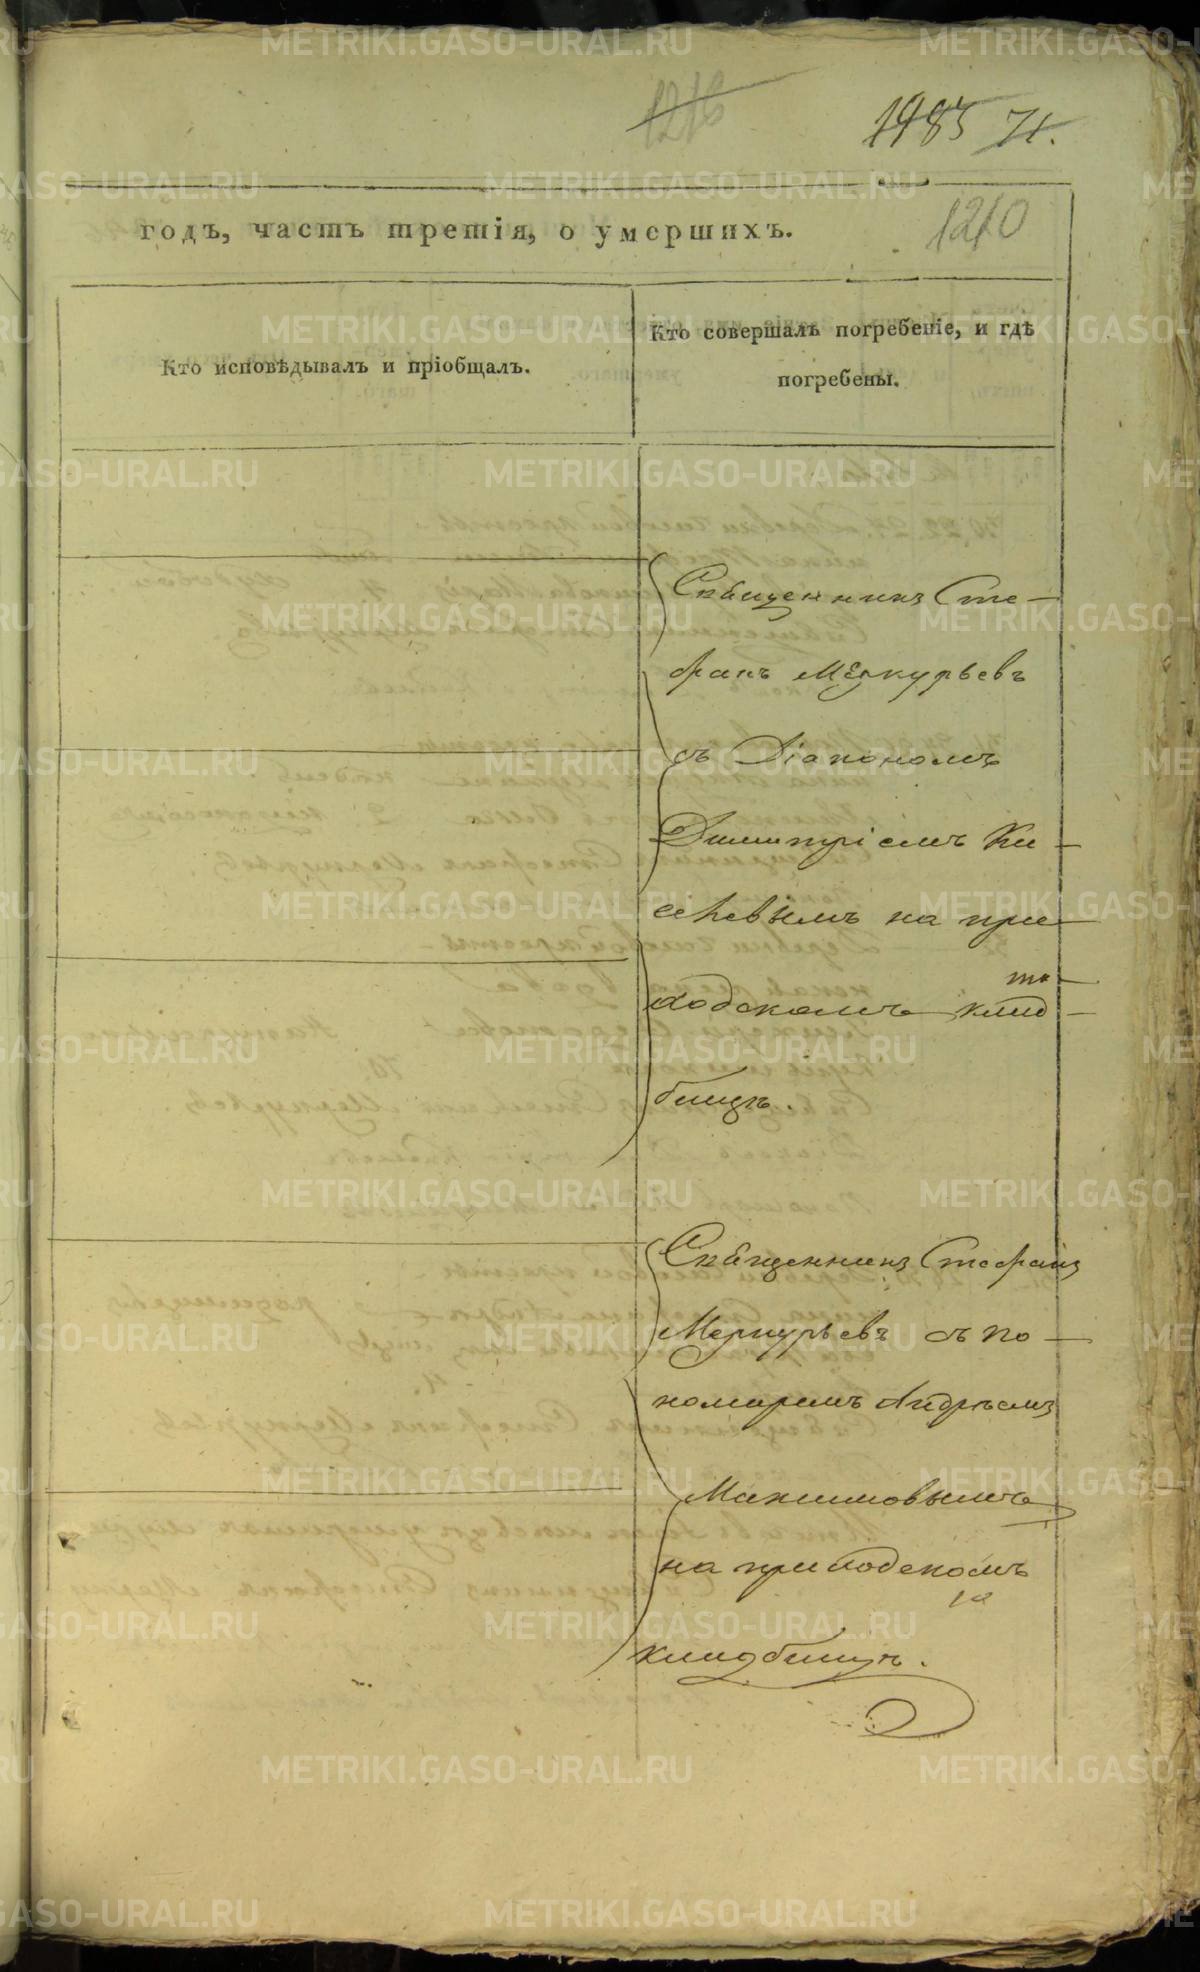 METRIKI.GASO-URAL.RU
1216
1983 71.
1210
годъ, часть третія, о умершихъ.
Кто исповѣдывалъ и пріобщалъ.
Кто совершалъ погребеніе, и гдѣ
погребены.
Священникъ Сте-
фанъ Меркурьевъ
съ Діакономъ
Димитріемъ Ки-
селевымъ на при-
ходскомъ клад-
бищѣ.
Священникъ Стефанъ
Меркурьевъ съ по-
номаремъ Андреемъ
Максимовымъ
на приходскомъ
кладбищѣ.